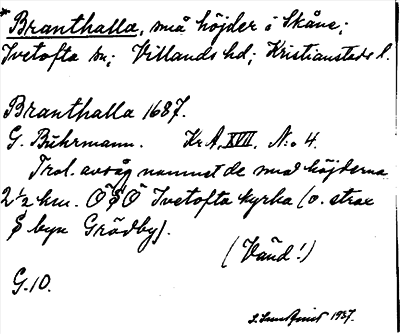 * Branthalla, små höjder i Skåne;
Ivetofta sn; Villands hd; Kristianstads l.
Branthalla 1687.
G. Buhrmann. Kr.A, XVII, N:o 4.
Trol. avsåg namnet de små höjderna
2½ km. ÖSÖ Ivetofta kyrka (o. strax
S byn Grödby).
(Vänd!)
G.10.
1937.